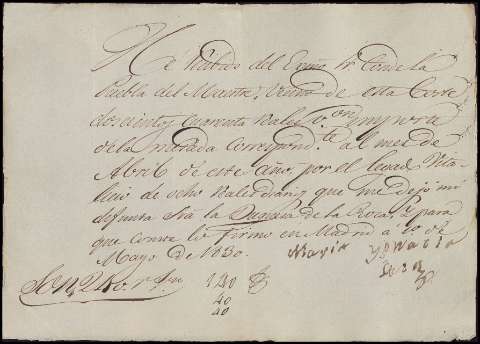 He recibido del Exmo. Sr. Conde de la
Puebla del Maestre, Vecino de esta Corte
doscientos y cuarenta Reales Von
de la morada correspondte. al mes de
Abril de este año, por el legado Vita-
licio de ocho reales diarios que me dejo mi
difunta Sra la Duquesa de la Roca, y para
que conste lo firmo en Madrid á 10 de
Mayo de 1830.
Maria Ygnacia
Son 240. rs. vn
120
40
40